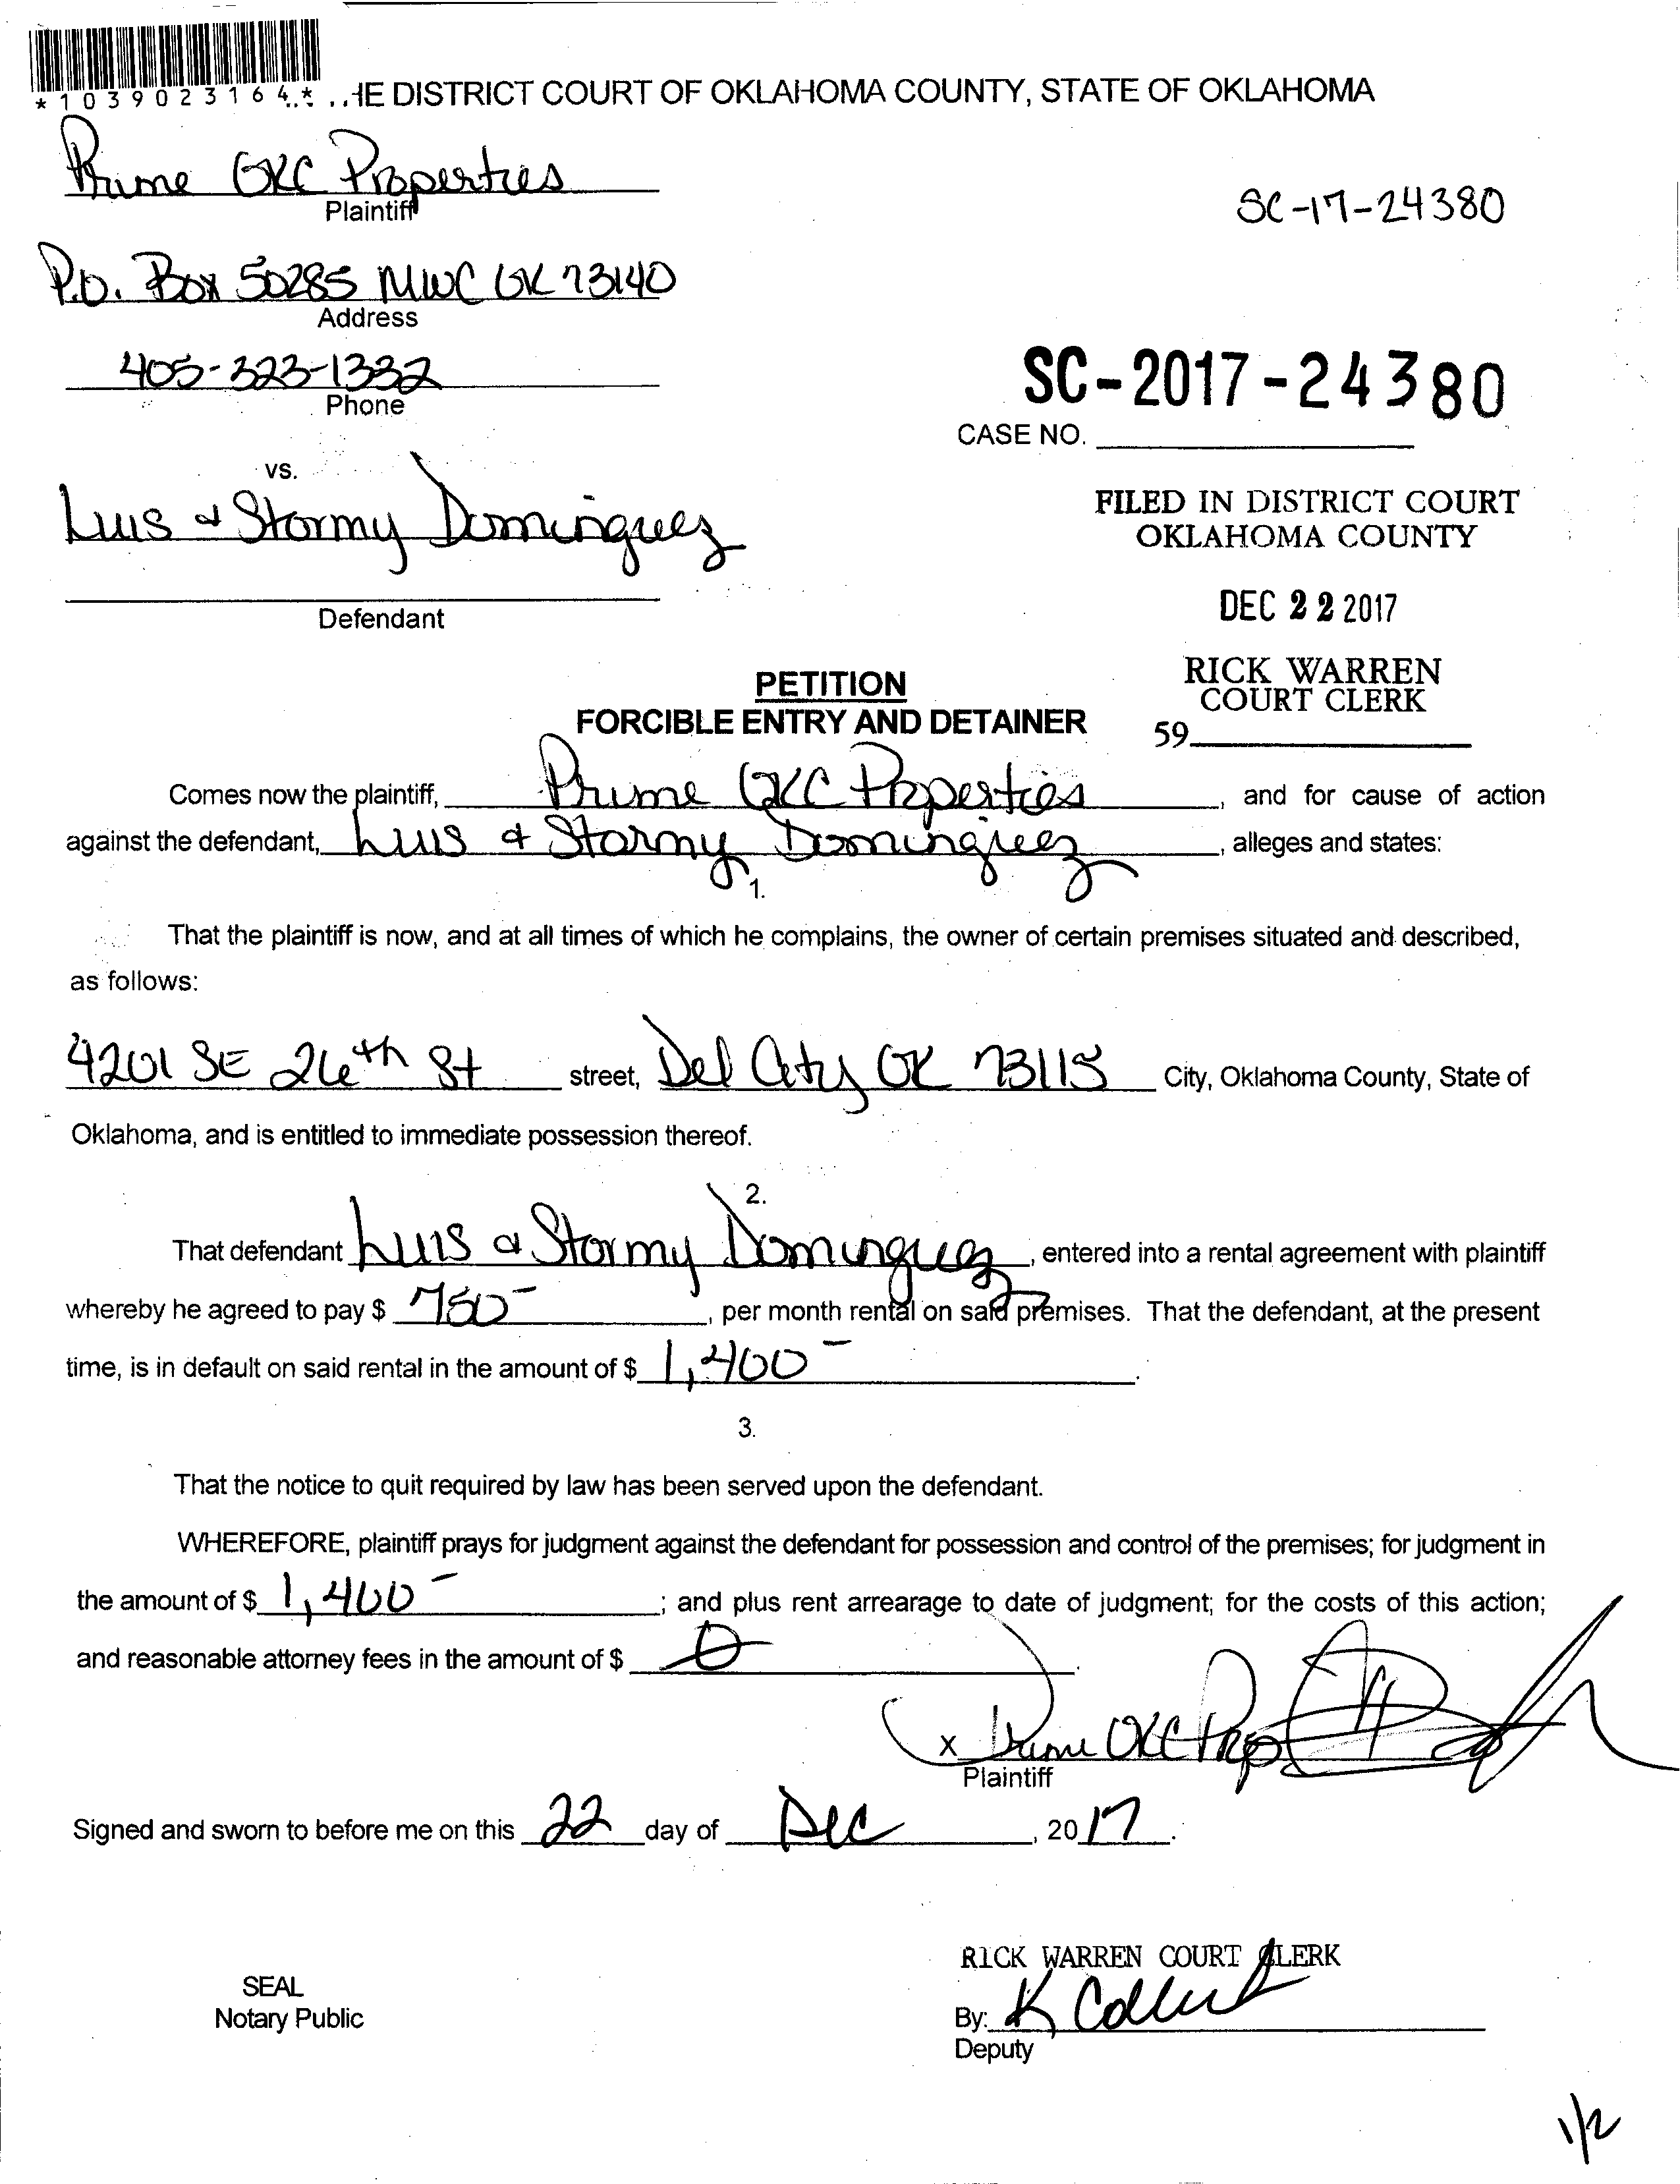 *1039023164*
HE DISTRICT COURT OF OKLAHOMA COUNTY, STATE OF OKLAHOMA
Prime OKC Properties
Plaintiff
SC-17-24380
P.O. Box 50285 MWC OK 73140
Address
405-323-1332
Phone
SC-2017-24380
CASE NO.
vs.
Luis & Stormy Dominguez
Defendant
FILED IN DISTRICT COURT
OKLAHOMA COUNTY
DEC 22 2017
RICK WARREN
COURT CLERK
59
PETITION
FORCIBLE ENTRY AND DETAINER
Comes now the plaintiff, Prime OKC Properties, and for cause of action
against the defendant, Luis & Stormy Dominguez, alleges and states:
1.
That the plaintiff is now, and at all times of which he complains, the owner of certain premises situated and described,
as follows:
4201 SE 26th St street, Del City OK 73115 City, Oklahoma County, State of
Oklahoma, and is entitled to immediate possession thereof.
2.
That defendant Luis & Stormy Dominguez, entered into a rental agreement with plaintiff
whereby he agreed to pay $ 750-, per month rental on said premises. That the defendant, at the present
time, is in default on said rental in the amount of $ 1,400-.
3.
That the notice to quit required by law has been served upon the defendant.
WHEREFORE, plaintiff prays for judgment against the defendant for possession and control of the premises; for judgment in
the amount of $ 1,400-; and plus rent arrearage to date of judgment; for the costs of this action;
and reasonable attorney fees in the amount of $ 0.
x Prime OKC Prop
Plaintiff
Signed and sworn to before me on this 22 day of Dec, 2017.
RICK WARREN COURT CLERK
SEAL
Notary Public
By: K
Deputy
1/2